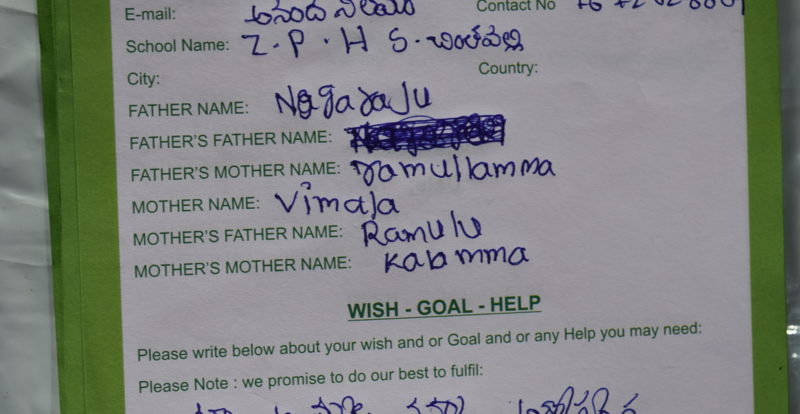 E-mail: Contact No
School Name: Z.P.H S.చింతపల్లి
City: Country:
FATHER NAME: Nagaraju
FATHER'S FATHER NAME:
FATHER'S MOTHER NAME: ramullamma
MOTHER NAME: Vimala
MOTHER'S FATHER NAME: Ramulu
MOTHER'S MOTHER NAME: Kalamma
WISH - GOAL - HELP
Please write below about your wish and or Goal and or any Help you may need:
Please Note : we promise to do our best to fulfil: